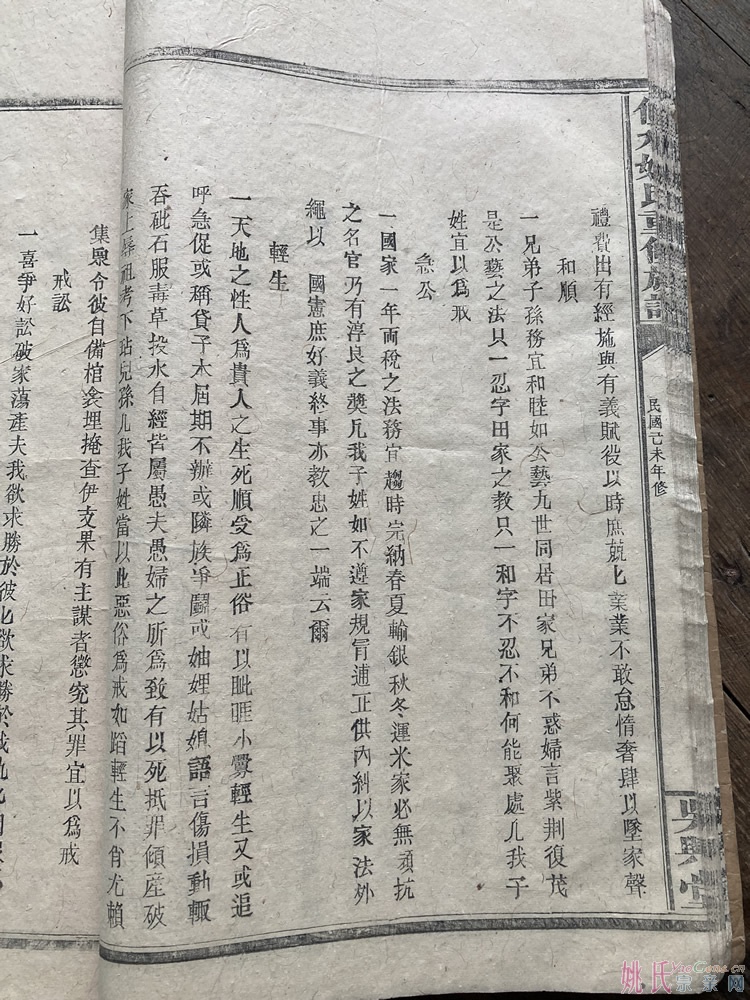 姚氏重修族譜
民國己未年修
吳興堂
禮費出有經施與有義賦役以時庶兢匕業業不敢怠惰奢肆以墜家聲
和順
一兄弟子孫務宜和睦如公藝九世同居田家兄弟不惑婦言紫荆復茂
是公藝之法只一忍字田家之教只一和字不忍不和何能聚處凡我子
姓宜以爲戒
急公
一國家一年両稅之法務宜趨時完納春夏輸銀秋冬運米家必無頑抗
之名官乃有淳良之奬凡我子姓如不遵家規肎逋正供內糾以家法外
繩以 國憲庶好義終事亦教忠之一端云爾
輕生
一天地之性人爲貴人之生死順受爲正俗有以眦睚小釁輕生又或追
呼急促或稱貸子本屆期不辦或隣族爭鬬或妯娌姑娘語言傷損動輙
吞砒石服毒草投水自經皆屬愚夫愚婦之所爲致有以死抵罪傾產破
家上辱祖考下玷兒孫凡我子姓當以此惡俗爲戒如蹈輕生不肖尤賴
集衆令彼自備棺衾埋掩查伊支果有主謀者懲究其罪宜以爲戒
戒訟
一喜爭好訟破家蕩產夫我欲求勝於彼匕欲求勝於我
姚氏宗亲网
YaoGens.cn